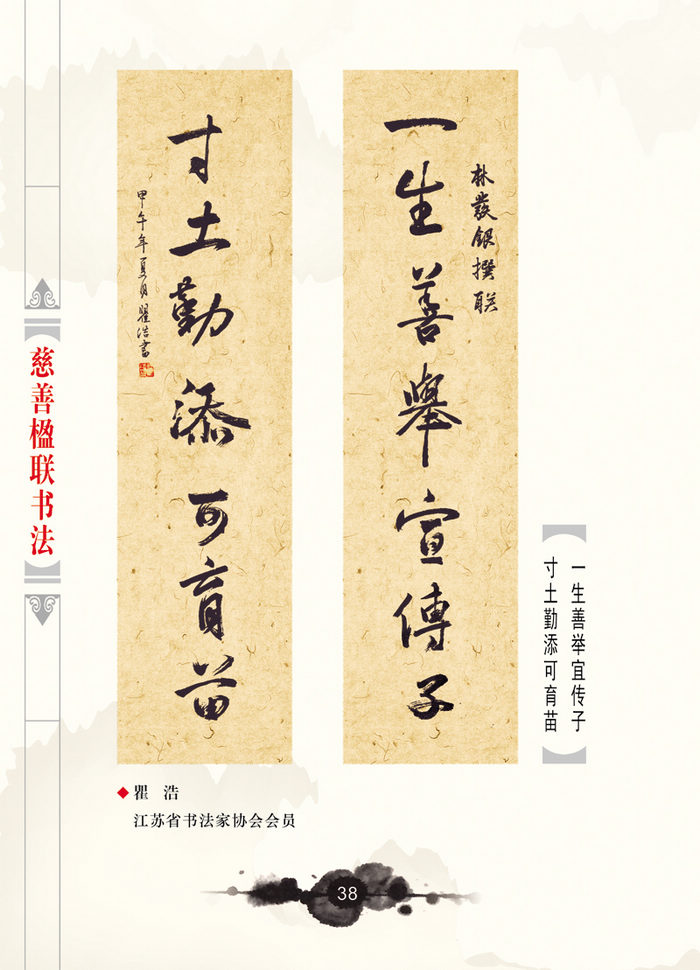 慈善楹联书法
一生善舉宣傳子
林發銀撰联
寸土勤添可育苗
甲午年夏月瞿浩書
一生善举宜传子
寸土勤添可育苗
瞿浩
江苏省书法家协会会员
38